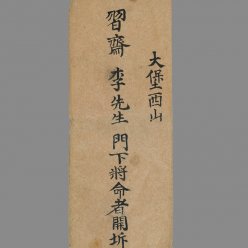 大堡西山
習齋 李先生 門下將命者開坼